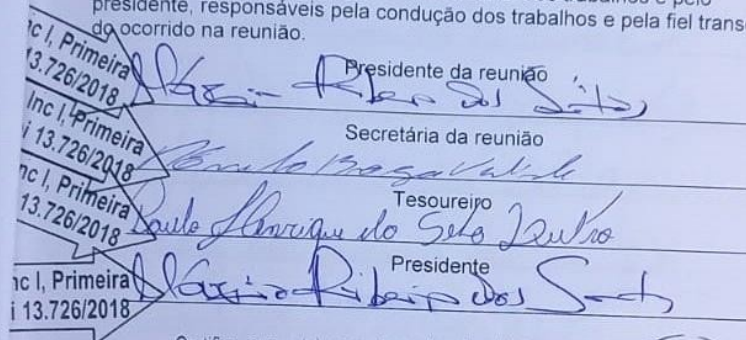 presidente, responsáveis pela condução dos trabalhos e pela fiel trans
do ocorrido na reunião.
nc I, Primeira
13.726/2018
Presidente da reunião
Ribeiro dos Santos
Inc I, Primeira
i 13.726/2018
Secretária da reunião
nc I, Primeira
13.726/2018
Tesoureiro
Paulo Henrique do
nc I, Primeira
i 13.726/2018
Presidente
Ribeiro dos Santos